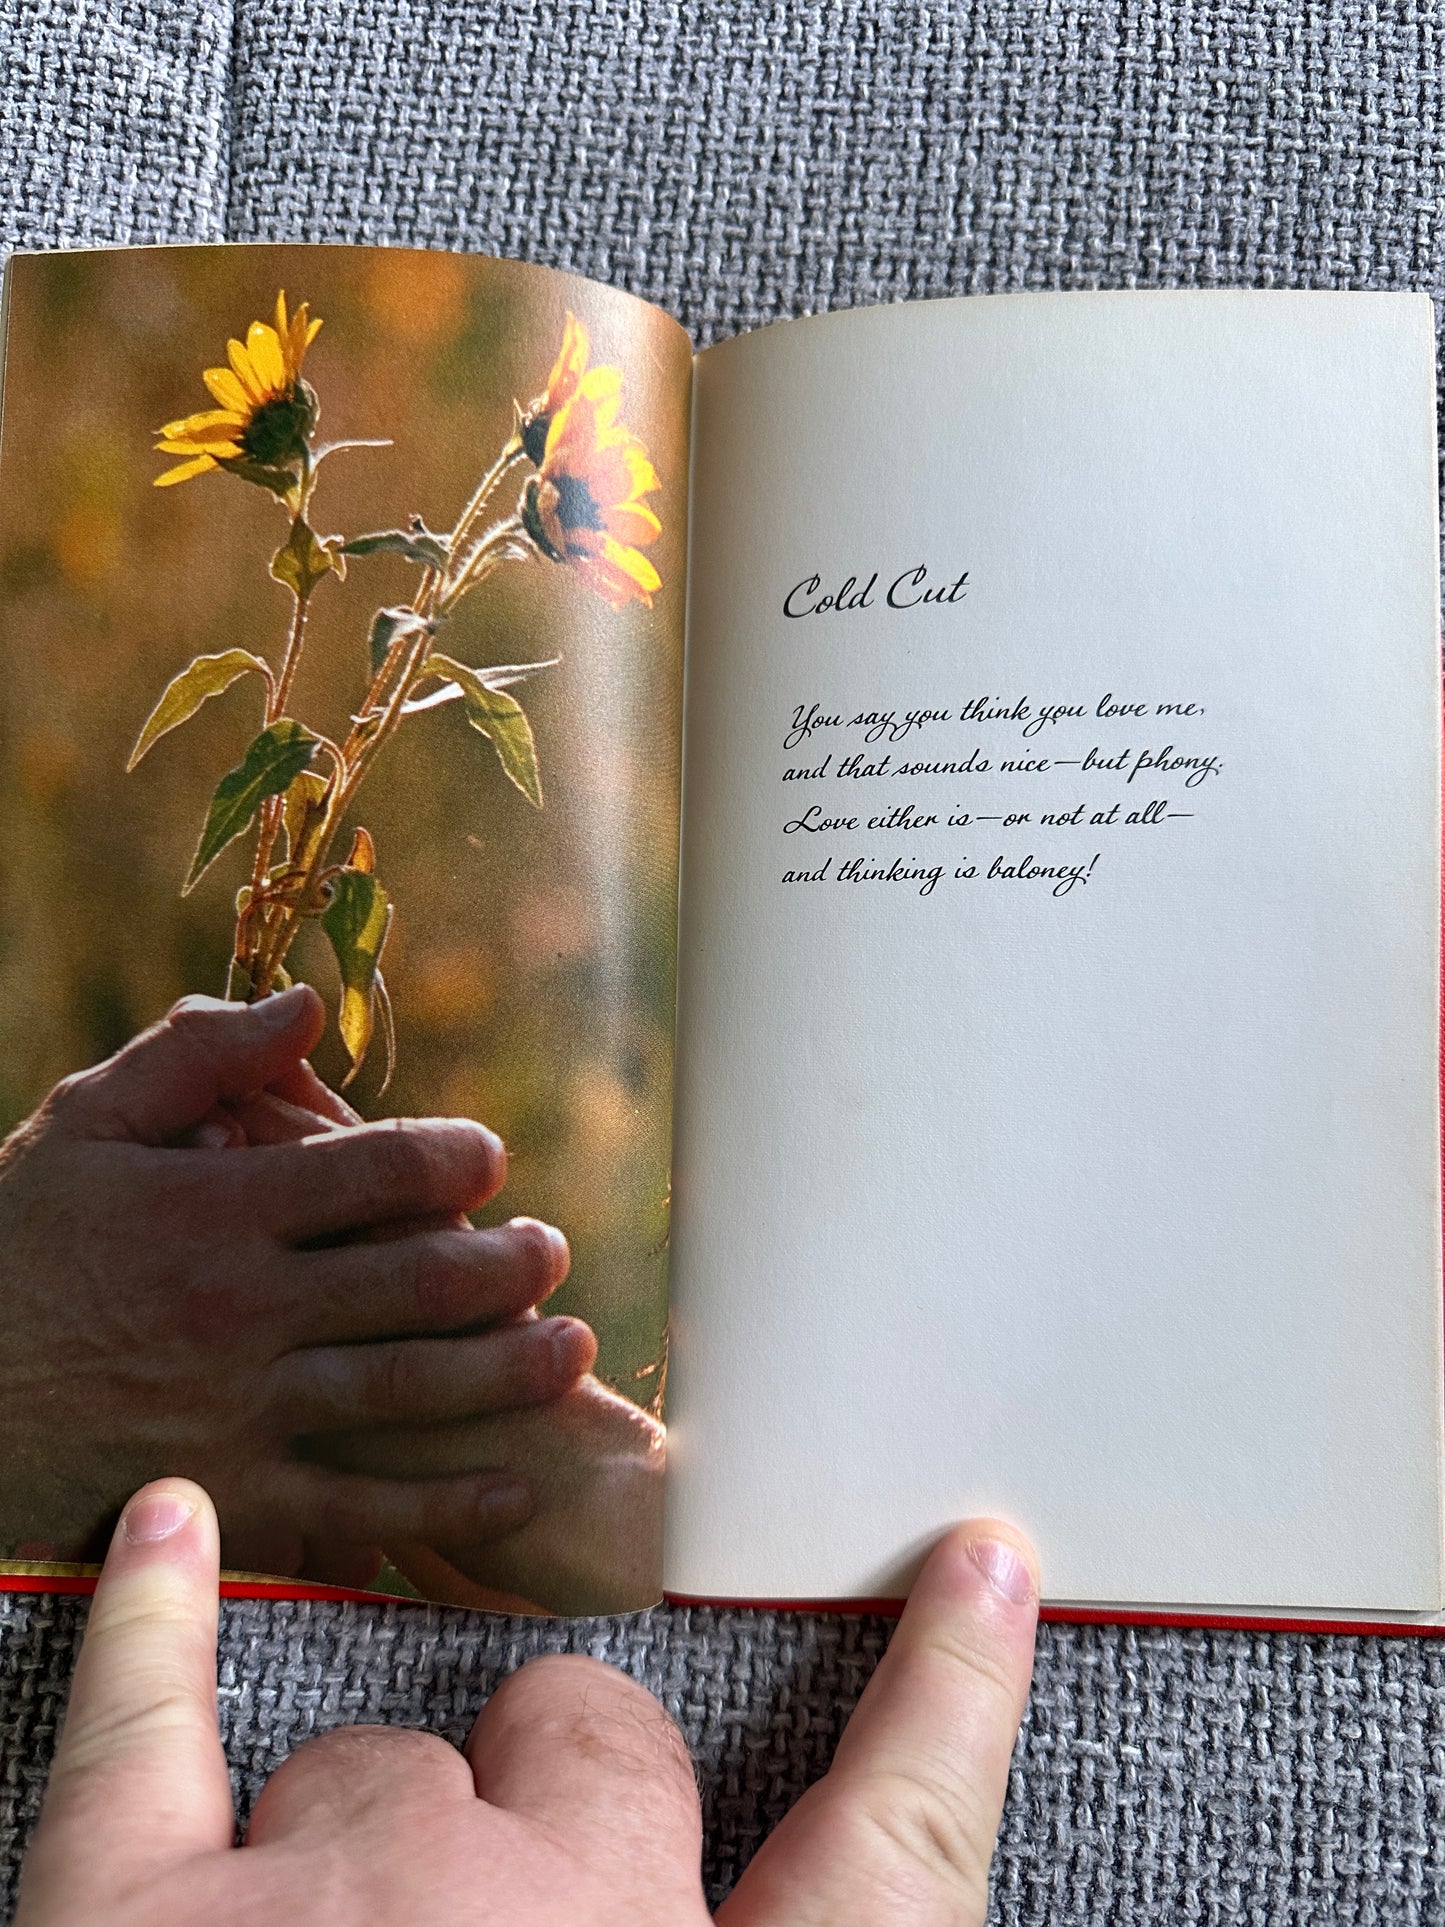 Cold Cut
You say you think you love me,
and that sounds nice—but phony.
Love either is—or not at all—
and thinking is baloney!